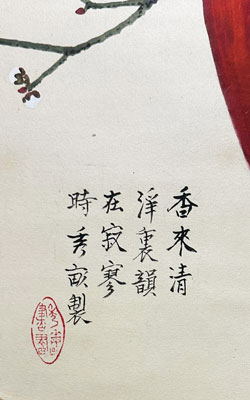 香來清
淨裏韻
在寂寥
時秀畝製